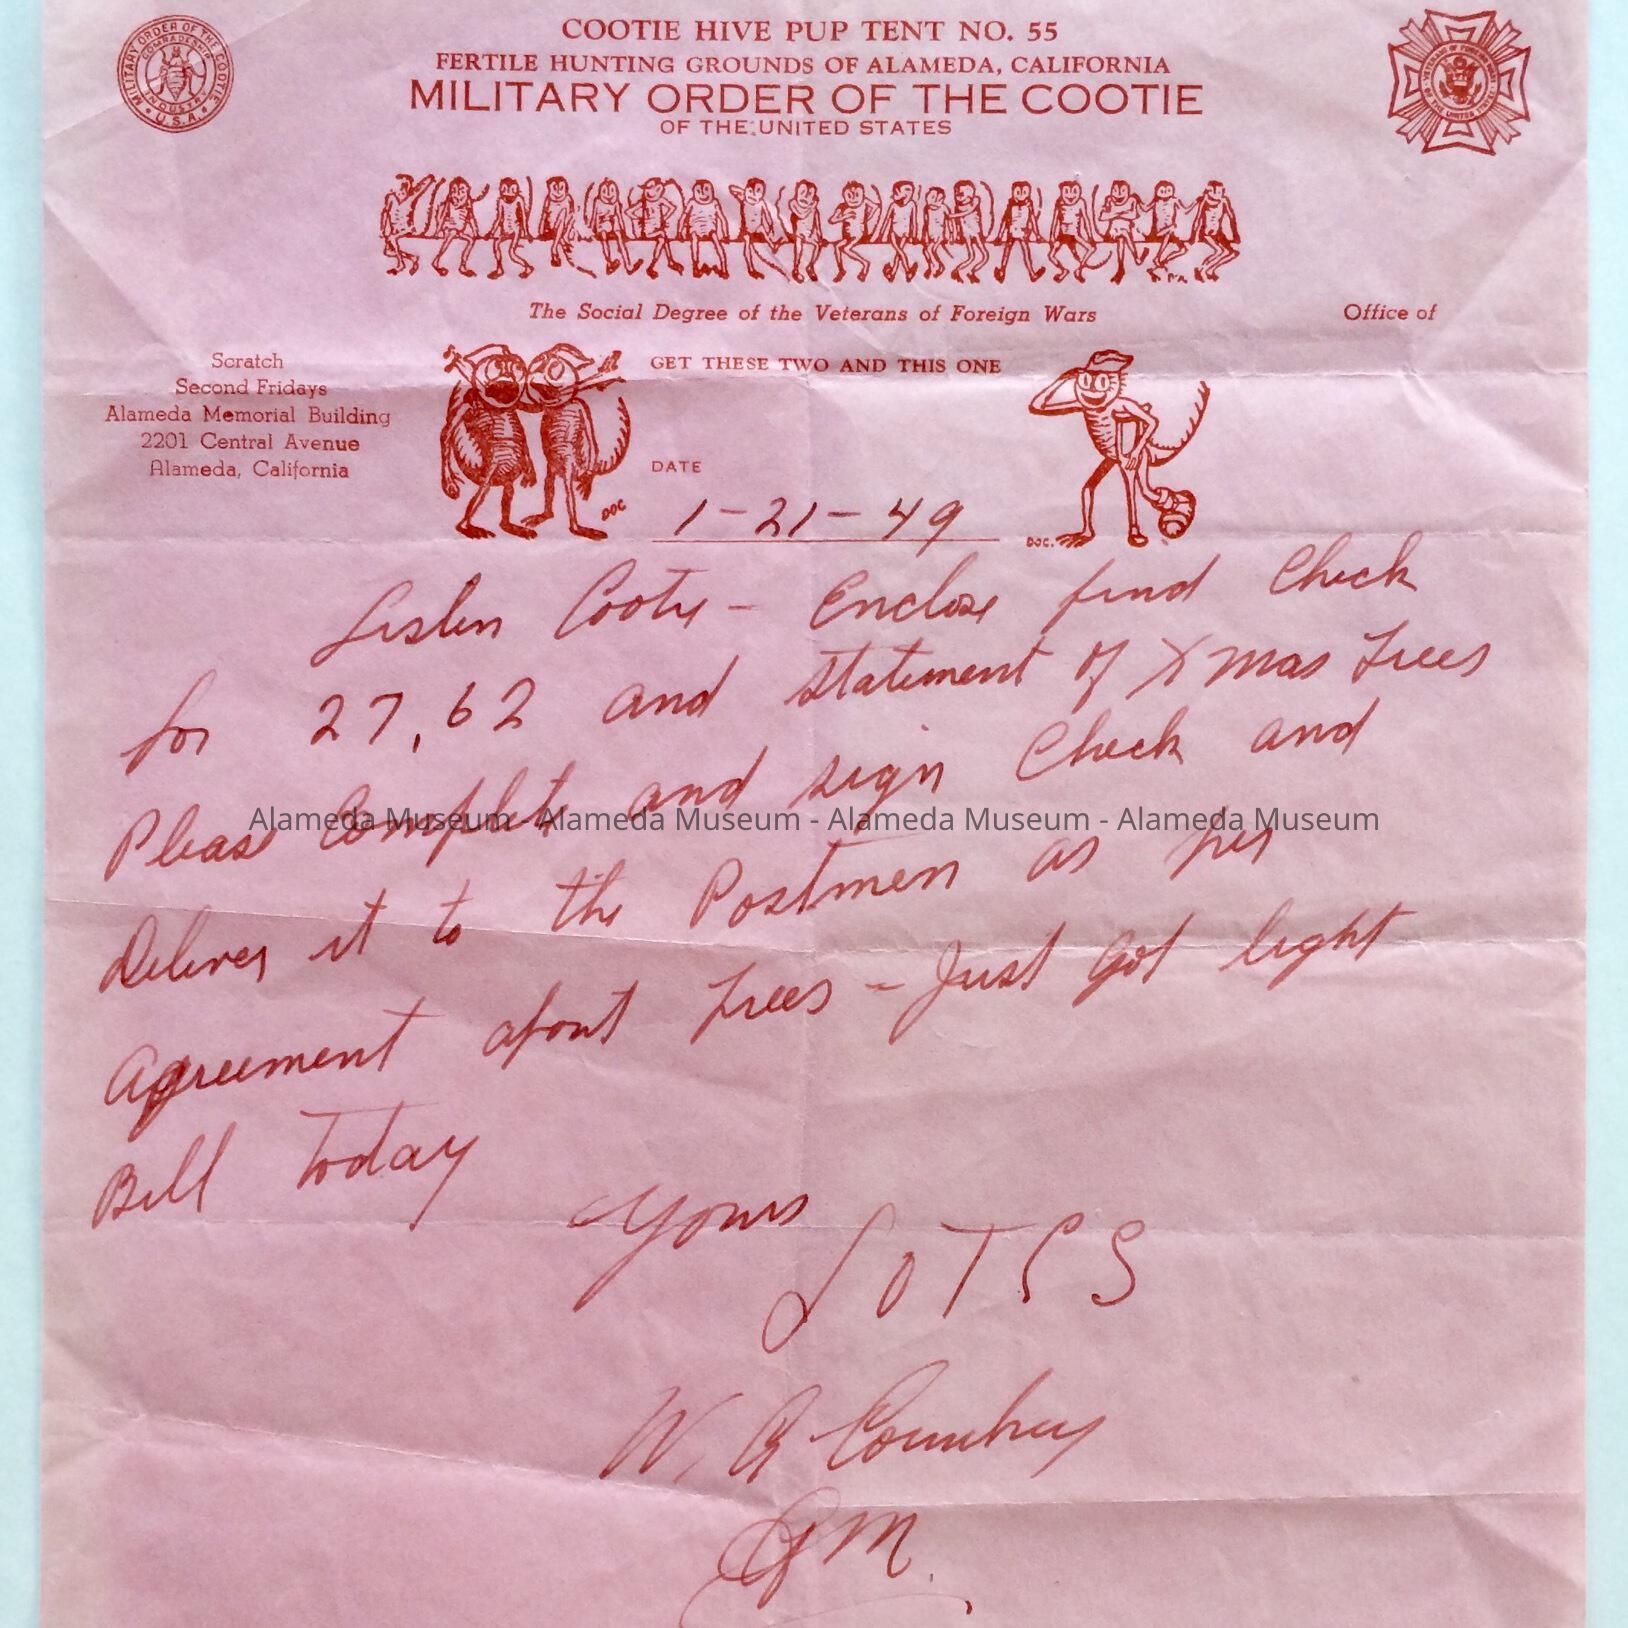 COOTIE HIVE PUP TENT NO. 55
FERTILE HUNTING GROUNDS OF ALAMEDA, CALIFORNIA
MILITARY ORDER OF THE COOTIE
OF THE UNITED STATES
MILITARY ORDER OF THE COOTIE
COMRADESHIP
INDUSTRY
U.S.A.
The Social Degree of the Veterans of Foreign Wars
Office of
Scratch
Second Fridays
Alameda Memorial Building
2201 Central Avenue
Alameda, California
GET THESE TWO AND THIS ONE
DOC
DOC.
DATE
1-21-49
Listen Cooty - Enclose find Check
for 27,62 and statement of Xmas Trees
Please Complete and sign Check and
Deliver it to the Postmen as per
Agreement about Trees - Just Got light
Bill Today
Yours
LOTCS
W. A
GM.
Alameda Museum - Alameda Museum - Alameda Museum - Alameda Museum